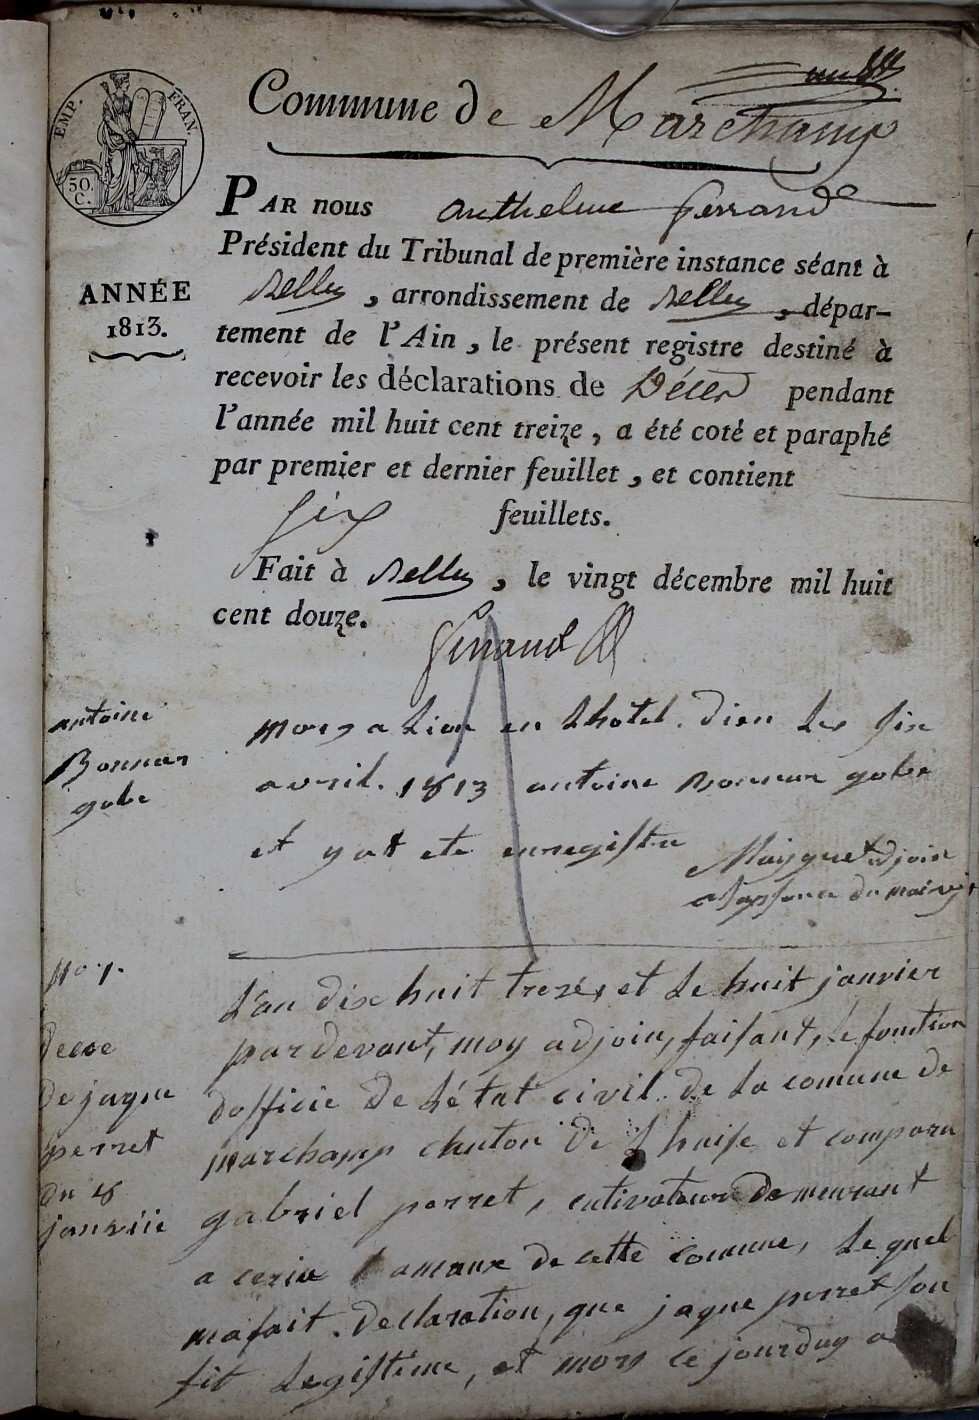 EMP. FRAN.
50.
C.
Commune de Marchamp
PAR nous anthelme ferrand
Président du Tribunal de première instance séant à
Belley, arrondissement de Belley, dépar-
tement de l'Ain, le présent registre destiné à
recevoir les déclarations de Décès pendant
l'année mil huit cent treize, a été coté et paraphé
par premier et dernier feuillet, et contient
six feuillets.
Fait à Belley, le vingt décembre mil huit
cent douze.
ferrand
ANNÉE
1813.
antoine
Bonnan
gobe
mors a Lion en Lhotel. dieu Les six
avril. 1813 antoine Bonnan gobe
et y at ete enregistre
adjoin
du maire
No. 1.
decse
de jaque
perret
du 8
janviie
L'an dixhuit treze, et Le huit janvier
pardevant, moy adjoin, faisant, Le fonction
dofficie de Létat civil. de La comune de
marchamp chuton de Lhuise et comparu
gabriel perret, cutivateur demeurant
a cerin hamaux de cette comune, Le quel
mafait. declaration, que jaque perret son
fit Legistime, et mors ce jourduy a